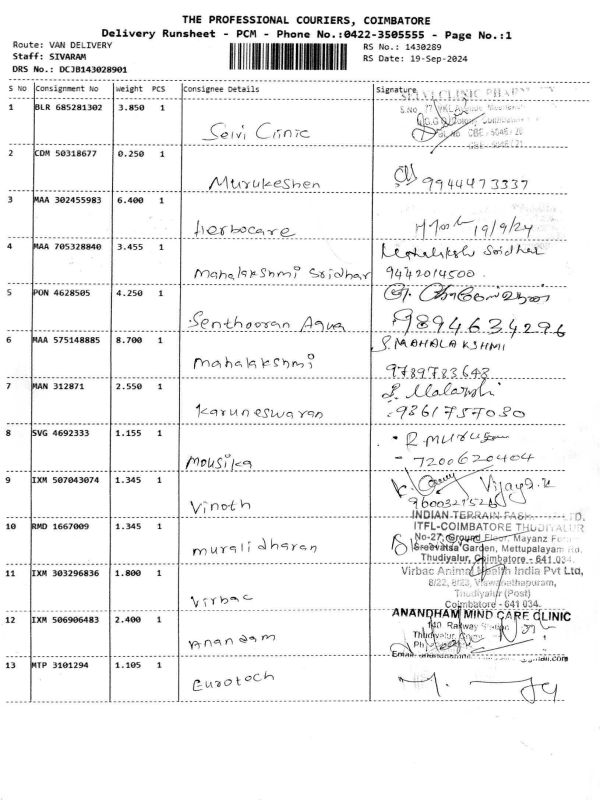 THE PROFESSIONAL COURIERS, COIMBATORE
Delivery Runsheet - PCM - Phone No.:0422-3505555 - Page No.:1
Route: VAN DELIVERY
RS No.: 1430289
Staff: SIVARAM
RS Date: 19-Sep-2024
DRS No.: DCJB143028901
S No Consignment No Weight PCS Consignee Details Signature
1 BLR 685281302 3.850 1
Selvi Clinic
2 CDM 50318677 0.250 1
Murukeshen 9944473337
3 MAA 302455983 6.400 1
Herbocare 19/9/24
4 MAA 705328840 3.455 1 Mahalakshi Sridhar
Mahalakshmi Sridhar 9442014500
5 PON 4628505 4.250 1
Senthooran Aqua 9894634296
6 MAA 575148885 8.700 1 S. MAHALAKSHMI
Mahalakshmi 9789783643
7 MAN 312871 2.550 1
Karuneswaran 9361757030
8 SVG 4692333 1.155 1 R. Murugan
Mousika 7200620404
9 IXM 507043074 1.345 1 Vijay
Vinoth
10 RMD 1667009 1.345 1 INDIAN TERRAIN
ITFL-COIMBATORE THUDIYALUR
No-27, Ground Floor, Mayanz
Sreevatsa Garden, Mettupalayam
Muralidharan Thudiyalur, Coimbatore - 641 034
11 IXM 303296836 1.800 1 Virbac Animal Health India Pvt Ltd,
8/22, 8/23, Viswanathapuram,
Thudiyalur (Post)
Virbac Coimbatore - 641 034.
12 IXM 506906483 2.400 1 ANANDHAM MIND CARE CLINIC
140 Railway
Anandam
13 MTP 3101294 1.105 1
Eurotech